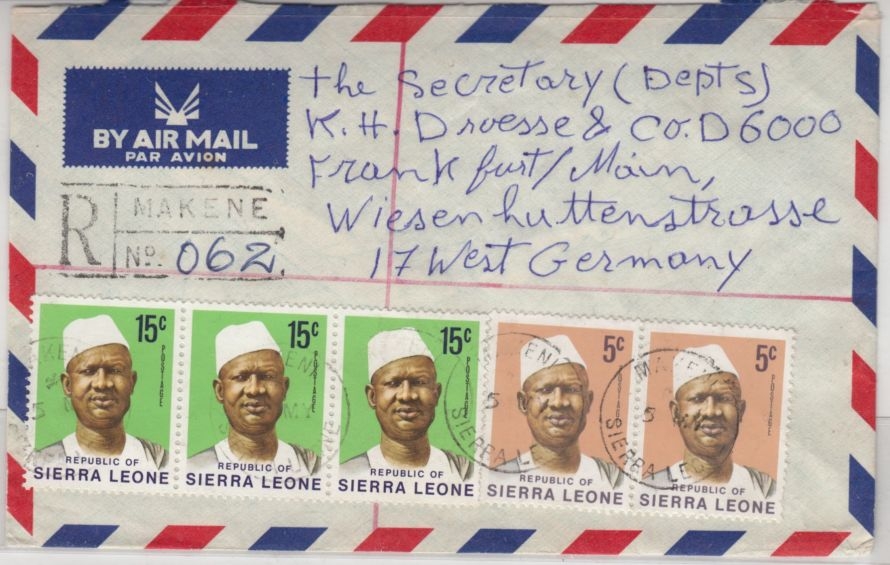 BY AIR MAIL
PAR AVION
The Secretary (Depts)
K. H. Droesse & Co. D 6000
Frankfurt/Main,
Wiesenhuttenstrasse
17 West Germany
R
MAKENE
No. 062
15c
POSTAGE
REPUBLIC OF
SIERRA LEONE
15c
POSTAGE
REPUBLIC OF
SIERRA LEONE
15c
POSTAGE
REPUBLIC OF
SIERRA LEONE
5c
POSTAGE
REPUBLIC OF
SIERRA LEONE
5c
POSTAGE
REPUBLIC OF
SIERRA LEONE
SIERRA LEO